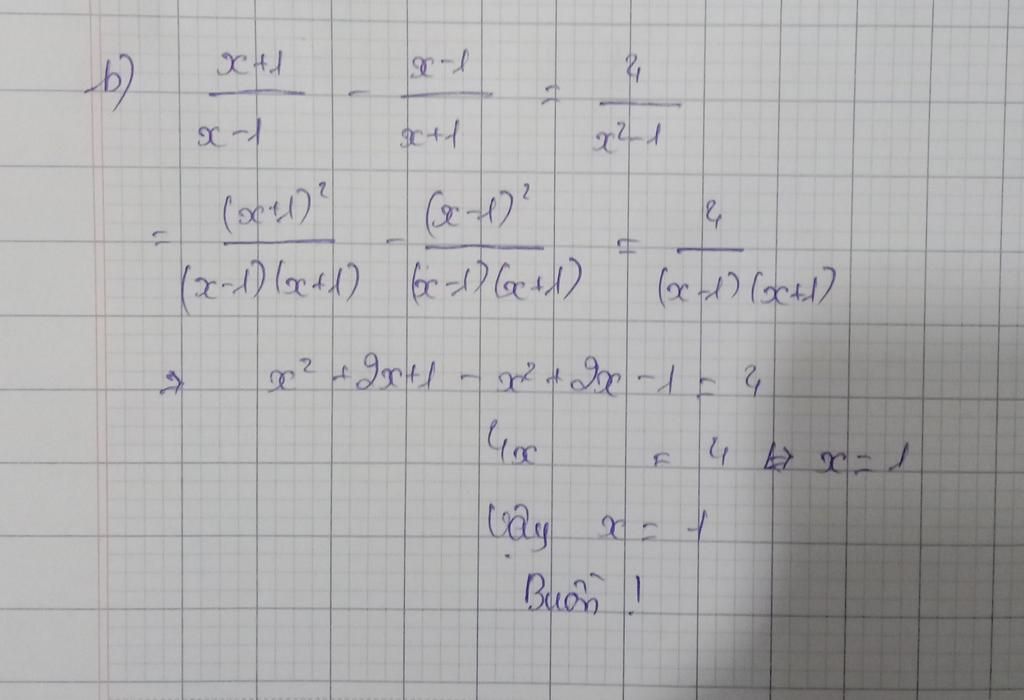 b) \frac{x+1}{x-1} - \frac{x-1}{x+1} = \frac{4}{x^2-1}
= \frac{(x+1)^2}{(x-1)(x+1)} - \frac{(x-1)^2}{(x-1)(x+1)} = \frac{4}{(x-1)(x+1)}
⇒ x² + 2x+1 - x² + 2x - 1 = 4
4x = 4 ⇔ x = 1
Vậy x = 1
Buồn !